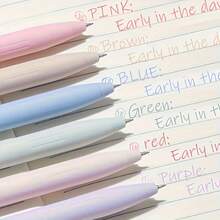 PINK:
Early in the day
Brown:
Early in the
BLUE:
Early in the
Green:
Early in
red:
Early in
Purple:
Early